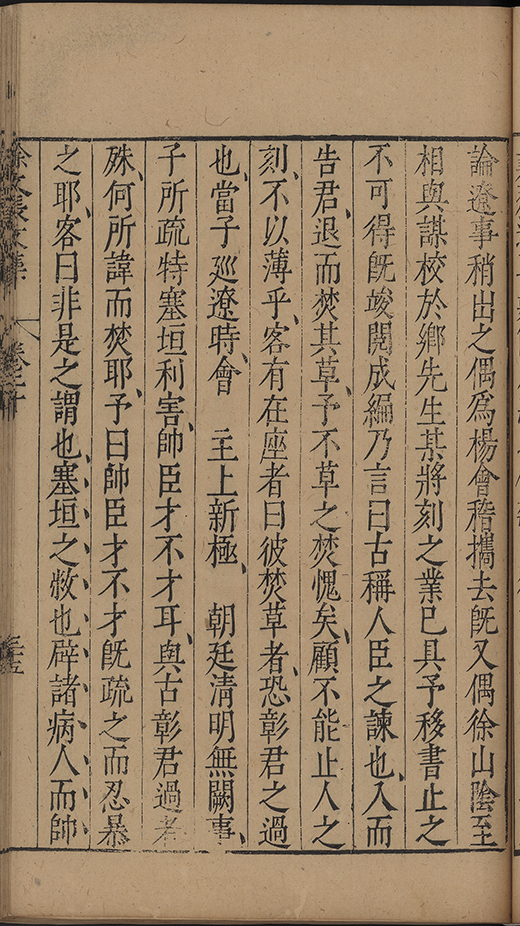 論遼事稍出之偶爲楊會稽攜去旣又偶徐山陰至
相與謀校於鄉先生某將刻之業已具予移書止之
不可得旣竣閱成編乃言曰古稱人臣之諫也、入而
告君、退而焚其草、予不草之焚愧矣、顧不能止人之
刻、不以薄乎、客有在座者曰彼焚草者、恐彰君之過
也、當子巡遼時、會 主上新極、 朝廷淸明無闕事、
子所疏特塞垣利害、帥臣才不才耳、與古彰君過者
殊、何所諱而焚耶、予曰帥臣才不才旣疏之而忍暴
之耶、客曰非是之謂也、塞垣之敝也、辟諸病人而帥
徐文長文集 卷之二十 三十五